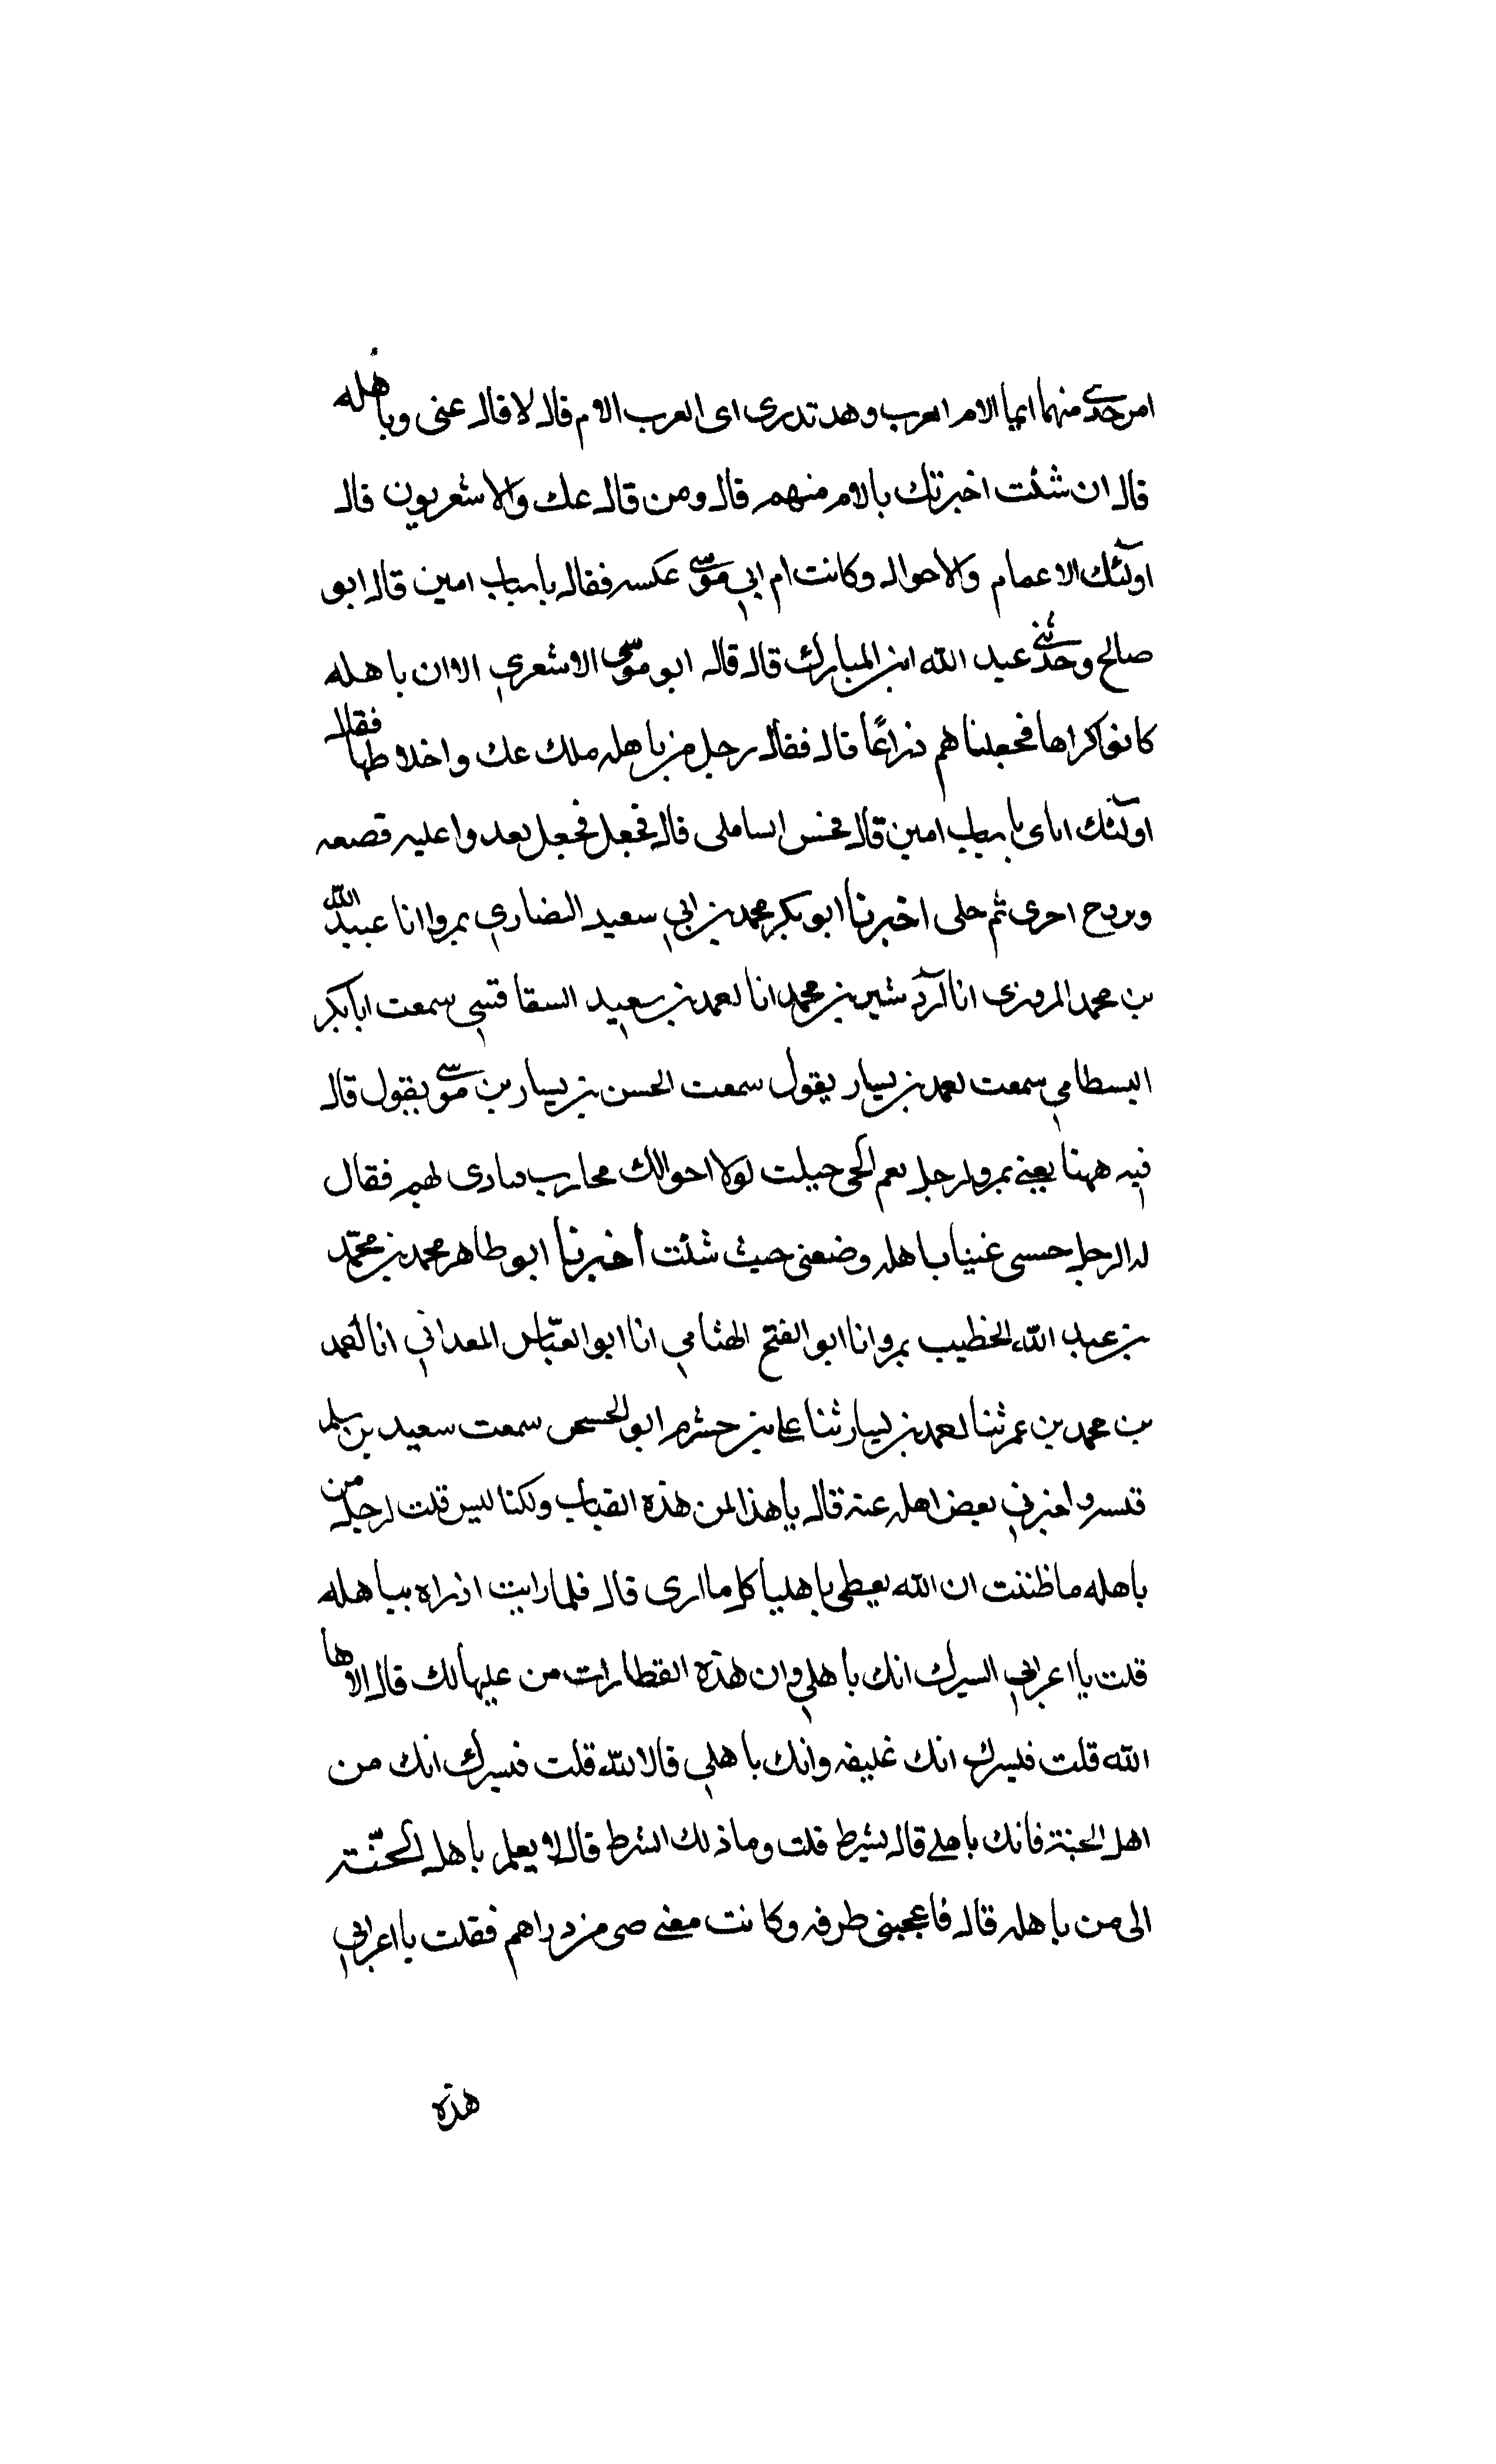 امرحدى منهما ايما الام العرب وهد تدرى اى العرب الام قال لا قال عنى وباهله
قال ان شئت اخبرتك بالام منهم قال ومن قال عك والاشعريون قال
اولئك الاعمام والاحوال وكانت ام ابي موسى عكسه فقال باساب امين قال ابو
صالح وحدثني عبد الله ابن المبارك قال قال ابو موسى الاشعري الا ان باهله
كانوا كراها فجعلناهم ذراعًا قال فقال رجل من باهله ملك عك واخلاطها فقال
اولئك اباى باساب امين قال فجعل فجعل بعدوا عليه قصعه
وبروح احرى ثم حلى اخبرنا ابو بكر محمد بن ابي سعيد النضاري بمرو انا عبيد الله
بن محمد المروزى انا آرد شير بن محمد انا احمد بن سعيد السقا قتيبي سمعت ابا بكر
البسطامي سمعت احمد بن يسار يقول سمعت الحسن بن يسار بن موسى يقول قال
فيه ههنا يعني بمرو لرجل نعم الحى حيلت لولا احوالك محارب سادى لهم فقال
له الرجل حسبى غنيا باهله وضعنى حيث شئت اخبرنا ابو طاهر محمد بن محمّد
بن عبد الله الخطيب بمرو انا ابو الفتح الهشامي انا ابو العبّاس المعداني انا احمد
بن محمد بن عمر ثنا احمد بن يسار ثنا علي بن حشرم ابو الحسن سمعت سعيد بن سلم
واخبرني بعض اهله عنه قال يا هذا لمن هذه القباب وكنا ليس قلت لرجل من
باهله ما ظننت ان الله يعطى باهليا كل ما ارى قال فلما رايت اذراه بباهله
قلت يا اعرابي السيرك انك باهلي وان هذه القطارات من عليها لك قال لا ها
الله قلت فيسرك انك خليفه وانك باهلي قال لا لله قلت فيسرك انك من
اهل الجنة فانك باهلي قال بشرط قلت وما ذلك الشرط قال لا يعلم باهل الجنّة
الى من باهله قال فاعجبنى طرفه وكانت معي صى من دراهم فقلت يا اعرابي
هذه